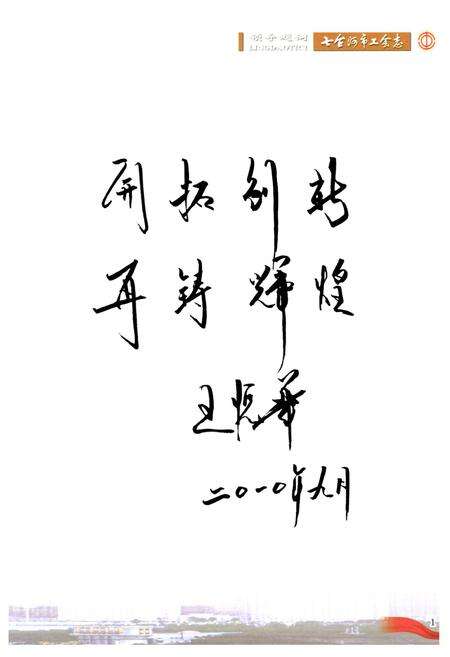 领导题词
LINGDAOTICI
七台河市工会志
开拓创新
再铸辉煌
王 华
二〇一〇年九月
1